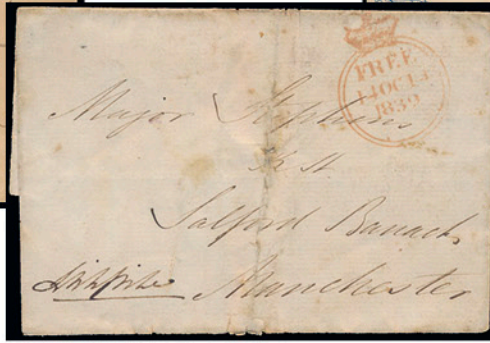 FREE
14OC14
1839
Major Stephens
K H
Salford Barracks
Manchester